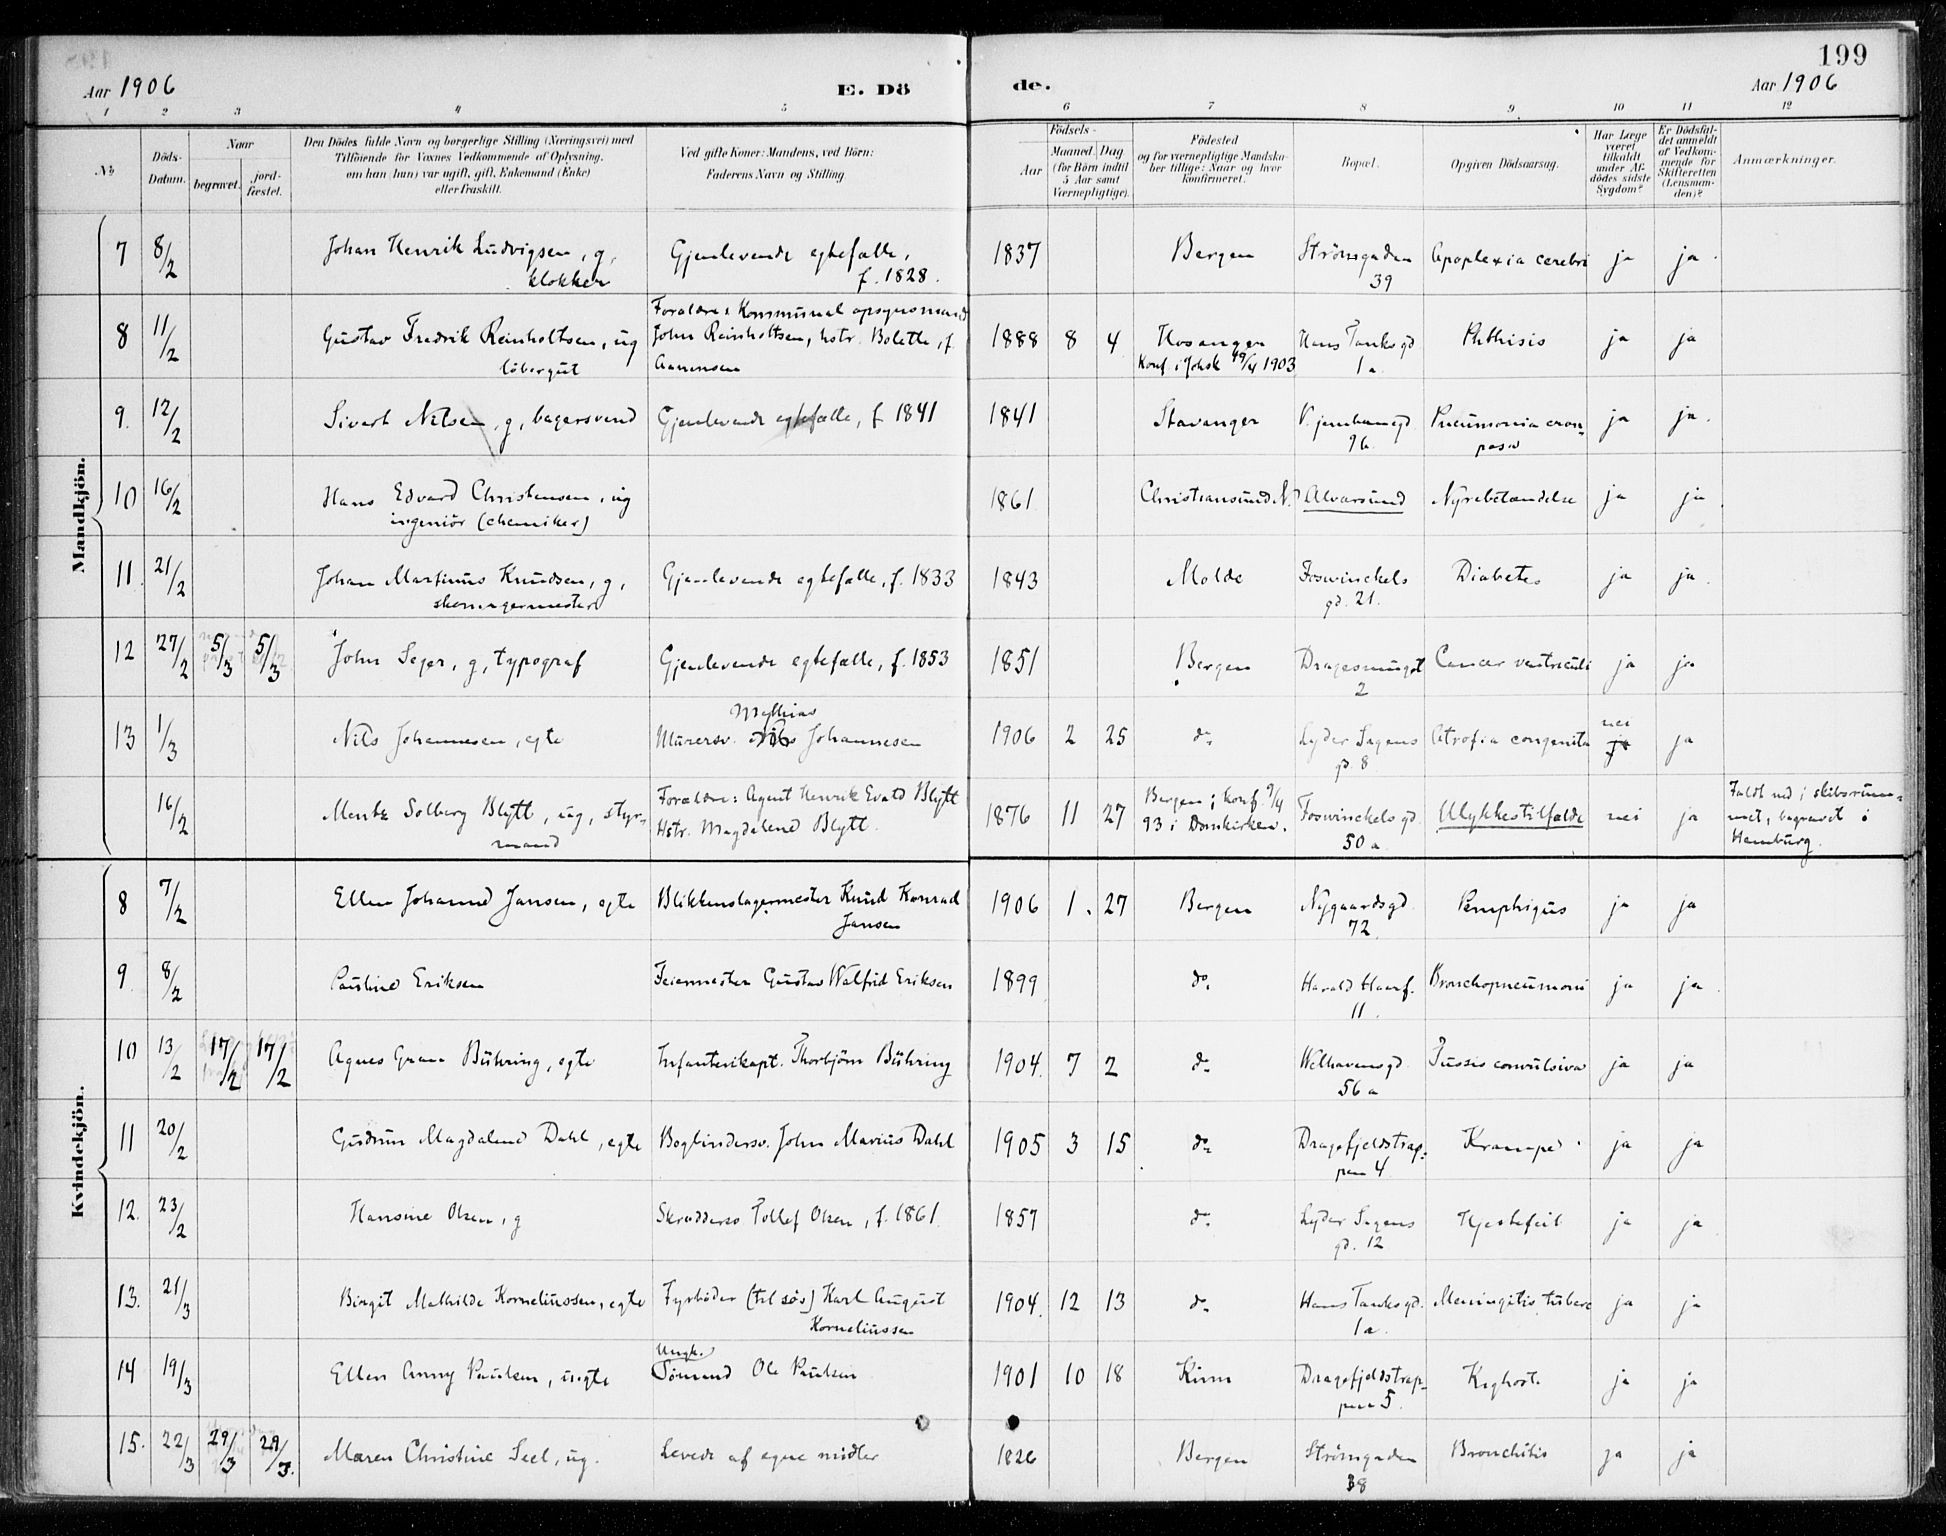 199
Aar 1906 E. Dö de. Aar 1906
1 2 3 4 5 6 7 8 9 10 11 12
No Döds-Datum. Naar begravet. jord-fæstet. Den Dödes fulde Navn og borgerlige Stilling (Næringsvei) med Tilföiende for Voxnes Vedkommende af Oplysning, om han (hun) var ugift, gift, Enkemand (Enke) eller fraskilt. Ved gifte Koner: Mandens, ved Börn: Faderens Navn og Stilling. Födsels- Aar Maaned. Dag (for Börn indtil 5 Aar samt Værnepligtige). Födested og for værnepligtige Mandskaber tillige: Naar og hvor konfirmeret. Bopæl. Opgiven Dödsaarsag. Har Læge været tilkaldt under Afdödes sidste Sygdom? Er Dödsfaldet anmeldt af Vedkommende for Skifteretten (Lensmanden)? Anmærkninger.
Mandkjön.
7 8/2 Johan Henrik Ludvigsen, g, klokker Gjenlevende egtefælle, f. 1828. 1837 Bergen Strömgaden 39 Apoplexia cerebri ja ja
8 11/2 Gustav Fredrik Reinholtsen, ug löbergut Forældre: Kommunal opsynsmand John Reinholtsen, hstr. Bolette, f. Aanensen 1888 8 4 Hosanger Konf. i Johsk 19/4 1903 Hans Tanks gd 1a Phthisis ja ja
9. 12/2 Sivert Nilsen, g, bagersvend Gjenlevende egtefælle, f. 1841 1841 Stavanger V. jernbanegd. 96. Pneumonia crouposa ja ja.
10 16/2 Hans Edvard Christensen, ug ingeniör (chemiker) 1861 Christiansund N. Alvarsund Nyrebetændelse ja ja
11. 21/2 Johan Martinus Knudsen, g, Gjenlevende egtefælle, f. 1833 1843 Molde Foswinckels gd. 21. Diabetes ja ja
12 27/2 5/3 5/3 John Sejer, g, typograf Gjenlevende egtefælle, f. 1853 1851 Bergen Dragesmuget 2 Cancer ventriculi ja ja
13 1/3 Nils Johannesen, egte Murersv. Mathias Johannesen 1906 2 25 do. Lyder Sagens gd. 8 Atrofia congenita nei ja
16/2 Mentz Solberg Blytt, ug, styrmand Forældre: Agent Henrik Evald Blytt Hstr. Magdalene Blytt. 1876 11 27 Bergen; konf. 9/4 93 i Domkirken. Foswinckels gd. 50a Ulykkestilfælde nei ja Faldt ned i skibsrummet, begravet i Hamburg.
Kvindekjön.
8 7/2 Ellen Johanne Jansen, egte Blikkenslagermester Knud Konrad Jansen 1906 1. 27 Bergen Nygaardsgd. 72 Pemphigus ja ja
9 8/2 Pauline Eriksen Feiermester Gustav Walfrid Eriksen 1899 do. Harald Haarf. 11. Bronchopneumoni ja ja
10 13/2 17/2 17/2 Agnes Gran Bühring, egte Infanterikapt. Thorbjörn Bühring 1904. 7 2 do. Welhavensgd. 56a Tussis convulsiva ja ja
11 20/2 Gudrun Magdalene Dahl, egte Bogbindersv. John Marius Dahl 1905 3 15 do. Dragefjeldstrappen 4 Krampe ja ja
12. 23/2 Hansine Olsen, g Skræddersv. Tollef Olsen, f. 1861. 1857 do. Lyder Sagens gd. 12 Hjertefeil ja ja
13. 21/3 Birgit Mathilde Korneliussen, egte Fyrböder (til søs) Karl August Korneliussen 1904. 12 13 do. Hans Tanks gd. 1a. Meningitis tuberc ja ja
14 19/3 Ellen Anny Paulsen, uegte Ungk. Sömand Ole Paulsen 1901 10 18 Kinn Dragefjeldstrappen 5. Kighoste ja ja
15. 22/3 29/3 29/3. Maren Christine Seel, ug. Levede af egne midler 1826 Bergen Strömgaden 38 Bronchitis ja ja